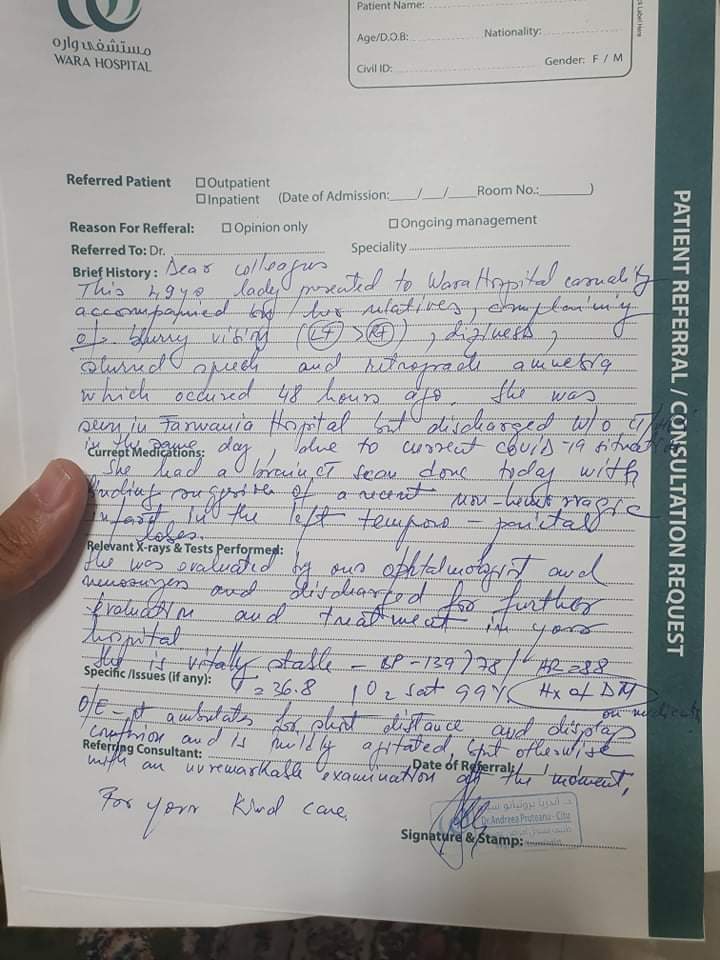 مستشفى واره
WARA HOSPITAL
Patient Name:
Age/D.O.B: Nationality:
Civil ID: Gender: F / M
Label Here
PATIENT REFERRAL / CONSULTATION REQUEST
Referred Patient □ Outpatient
□ Inpatient (Date of Admission: / / Room No.: )
Reason For Refferal: □ Opinion only □ Ongoing management
Referred To: Dr. Speciality
Brief History: Dear colleagues
This 49yo lady presented to Wara Hospital casuality
accompanied by her relatives, complaining
of blurry vision (Lt > Rt), diziness,
slurred speech and retrograde amnesia
which occured 48 hours ago. She was
seen in Farwania Hospital but discharged w/o CT
in the same day, due to current covid-19 situation
Current Medications:
She had a brain CT scan done today with
finding suggestive of a recent non-hemorrhagic
infarct in the left temporo-parietal
lobes.
Relevant X-rays & Tests Performed:
She was evaluated by our ophtalmologist and
and discharged for further
evaluation and treatment in your
hospital
She is vitally stable - BP-139/78, HR=88
Specific /Issues (if any):
T=36.8, O2 sat 99% Hx of DM
O/E - pt ambulates for short distance and displays
on medication
confusion and is mildly agitated, but otherwise
Referring Consultant: Date of Referral:
with an unremarkable examination at the moment.
For your kind care.
Dr. Andreea Proteanu - Citu
Signature & Stamp: